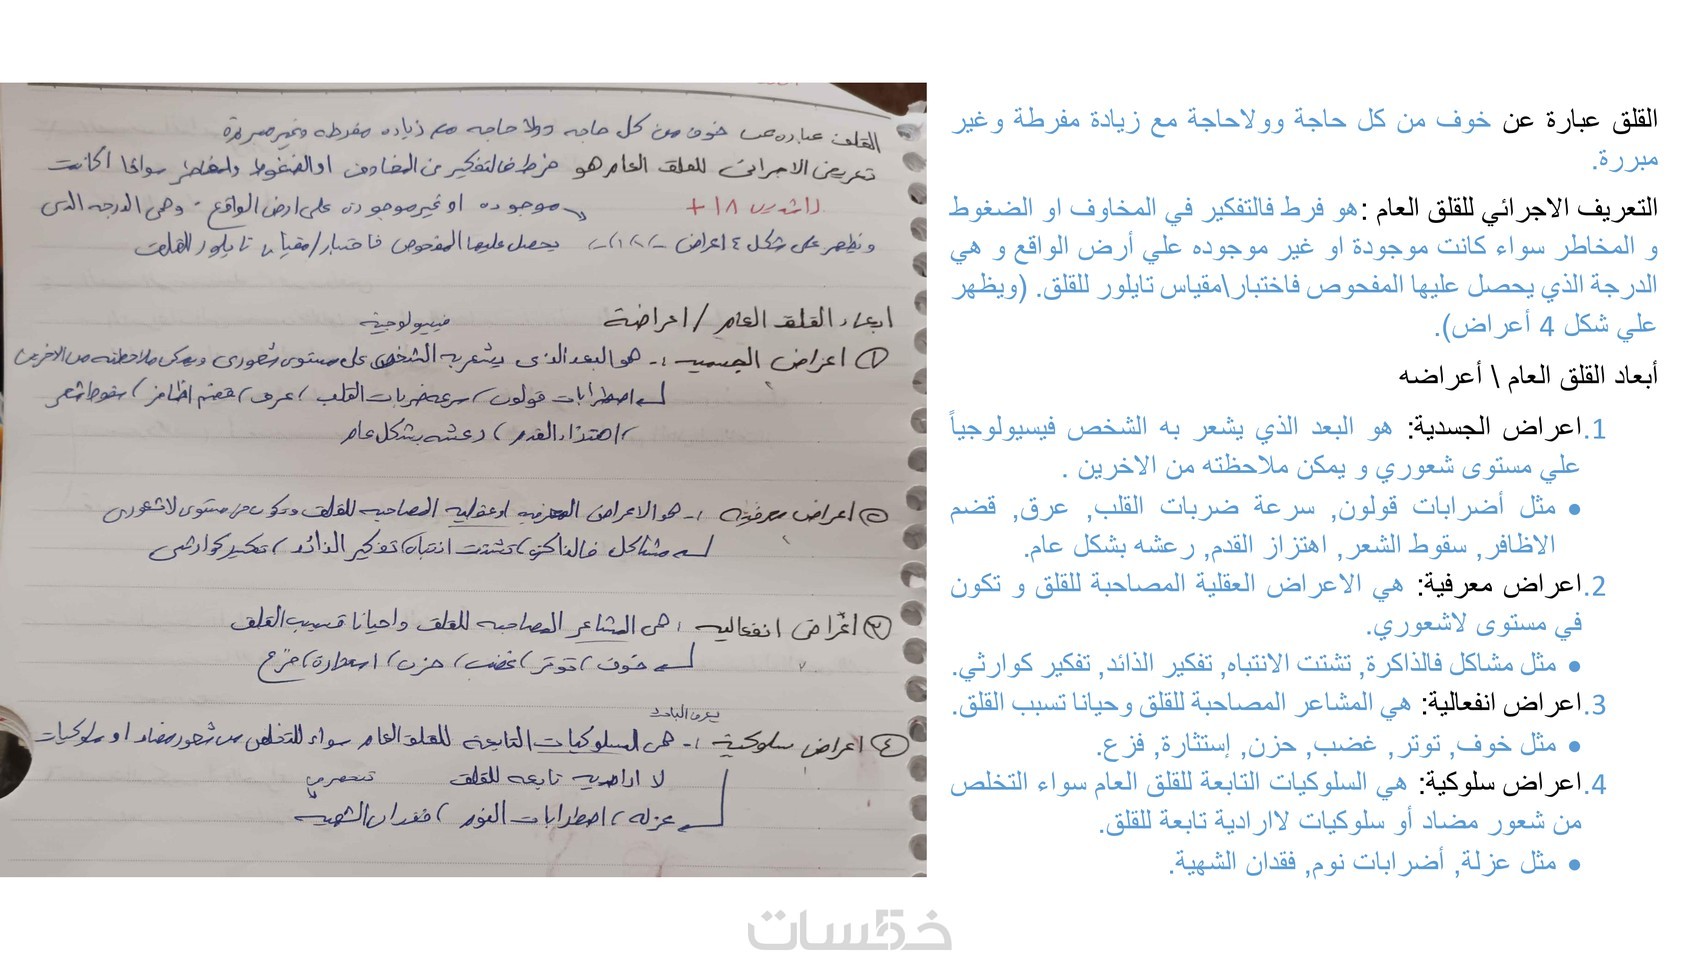 القلق عبارة عن خوف من كل حاجة وولاحاجة مع زيادة مفرطة وغير
مبررة.
التعريف الاجرائي للقلق العام :هو فرط فالتفكير في المخاوف او الضغوط
و المخاطر سواء كانت موجودة او غير موجوده علي أرض الواقع و هي
الدرجة الذي يحصل عليها المفحوص فاختبار\مقياس تايلور للقلق. (ويظهر
علي شكل 4 أعراض).
أبعاد القلق العام \ أعراضه
1. اعراض الجسدية: هو البعد الذي يشعر به الشخص فيسيولوجياً
علي مستوى شعوري و يمكن ملاحظته من الاخرين .
• مثل أضرابات قولون, سرعة ضربات القلب, عرق, قضم
الاظافر, سقوط الشعر, اهتزاز القدم, رعشه بشكل عام.
2. اعراض معرفية: هي الاعراض العقلية المصاحبة للقلق و تكون
في مستوى لاشعوري.
• مثل مشاكل فالذاكرة, تشتت الانتباه, تفكير الذائد, تفكير كوارثي.
3. اعراض انفعالية: هي المشاعر المصاحبة للقلق وحيانا تسبب القلق.
• مثل خوف, توتر, غضب, حزن, إستثارة, فزع.
4. اعراض سلوكية: هي السلوكيات التابعة للقلق العام سواء التخلص
من شعور مضاد أو سلوكيات لاارادية تابعة للقلق.
• مثل عزلة, أضرابات نوم, فقدان الشهية.
القلق عباره عن خوف من كل حاجه وولا حاجه مع زياده مفرطه وغير مبررة
تعريف الاجرائى للقلق العام هو فرط فالتفكير من المخاوف او الضغوط والمخاطر سواءا اكانت
راشدين 18 +
موجوده او غير موجوده على ارض الواقع - وهى الدرجه الذى
وتظهر على شكل ٤ اعراض
يحصل عليها المفحوص فاختبار/مقياس تايلور للقلق
ابعاد القلق العام / اعراضة
فيسيولوجية
① اعراض الجسميه :- هو البعد الذى يشعر به الشخص على مستوى شعورى ويمكن ملاحظته من الاخرين
اضطرابات قولون، سرعه ضربات القلب، عرق، قضم اظافر، سقوط شعر
، اهتذاذ القدم، رعشه بشكل عام
② اعراض معرفيه :- هو الاعراض المعرفيه او عقليه المصاحبه للقلق وتكون من مستوى لاشعورى
مشاكل فالذاكرة، تشتت انتباه، تفكير الذائد، تفكير كوارثى
③ اعراض انفعاليه : هى المشاعر المصاحبه للقلق واحيانا تسبب القلق
خوف، توتر، غضب، حزن، استثارة، فزع
يعرف الباحث
④ اعراض سلوكية :- هى السلوكيات التابعة للقلق العام سواء للتخلص من شعور مضاد او سلوكيات
لا اراديه تابعه للقلق
عزله، اضطرابات النوم، فقدان الشهيه
خمسات